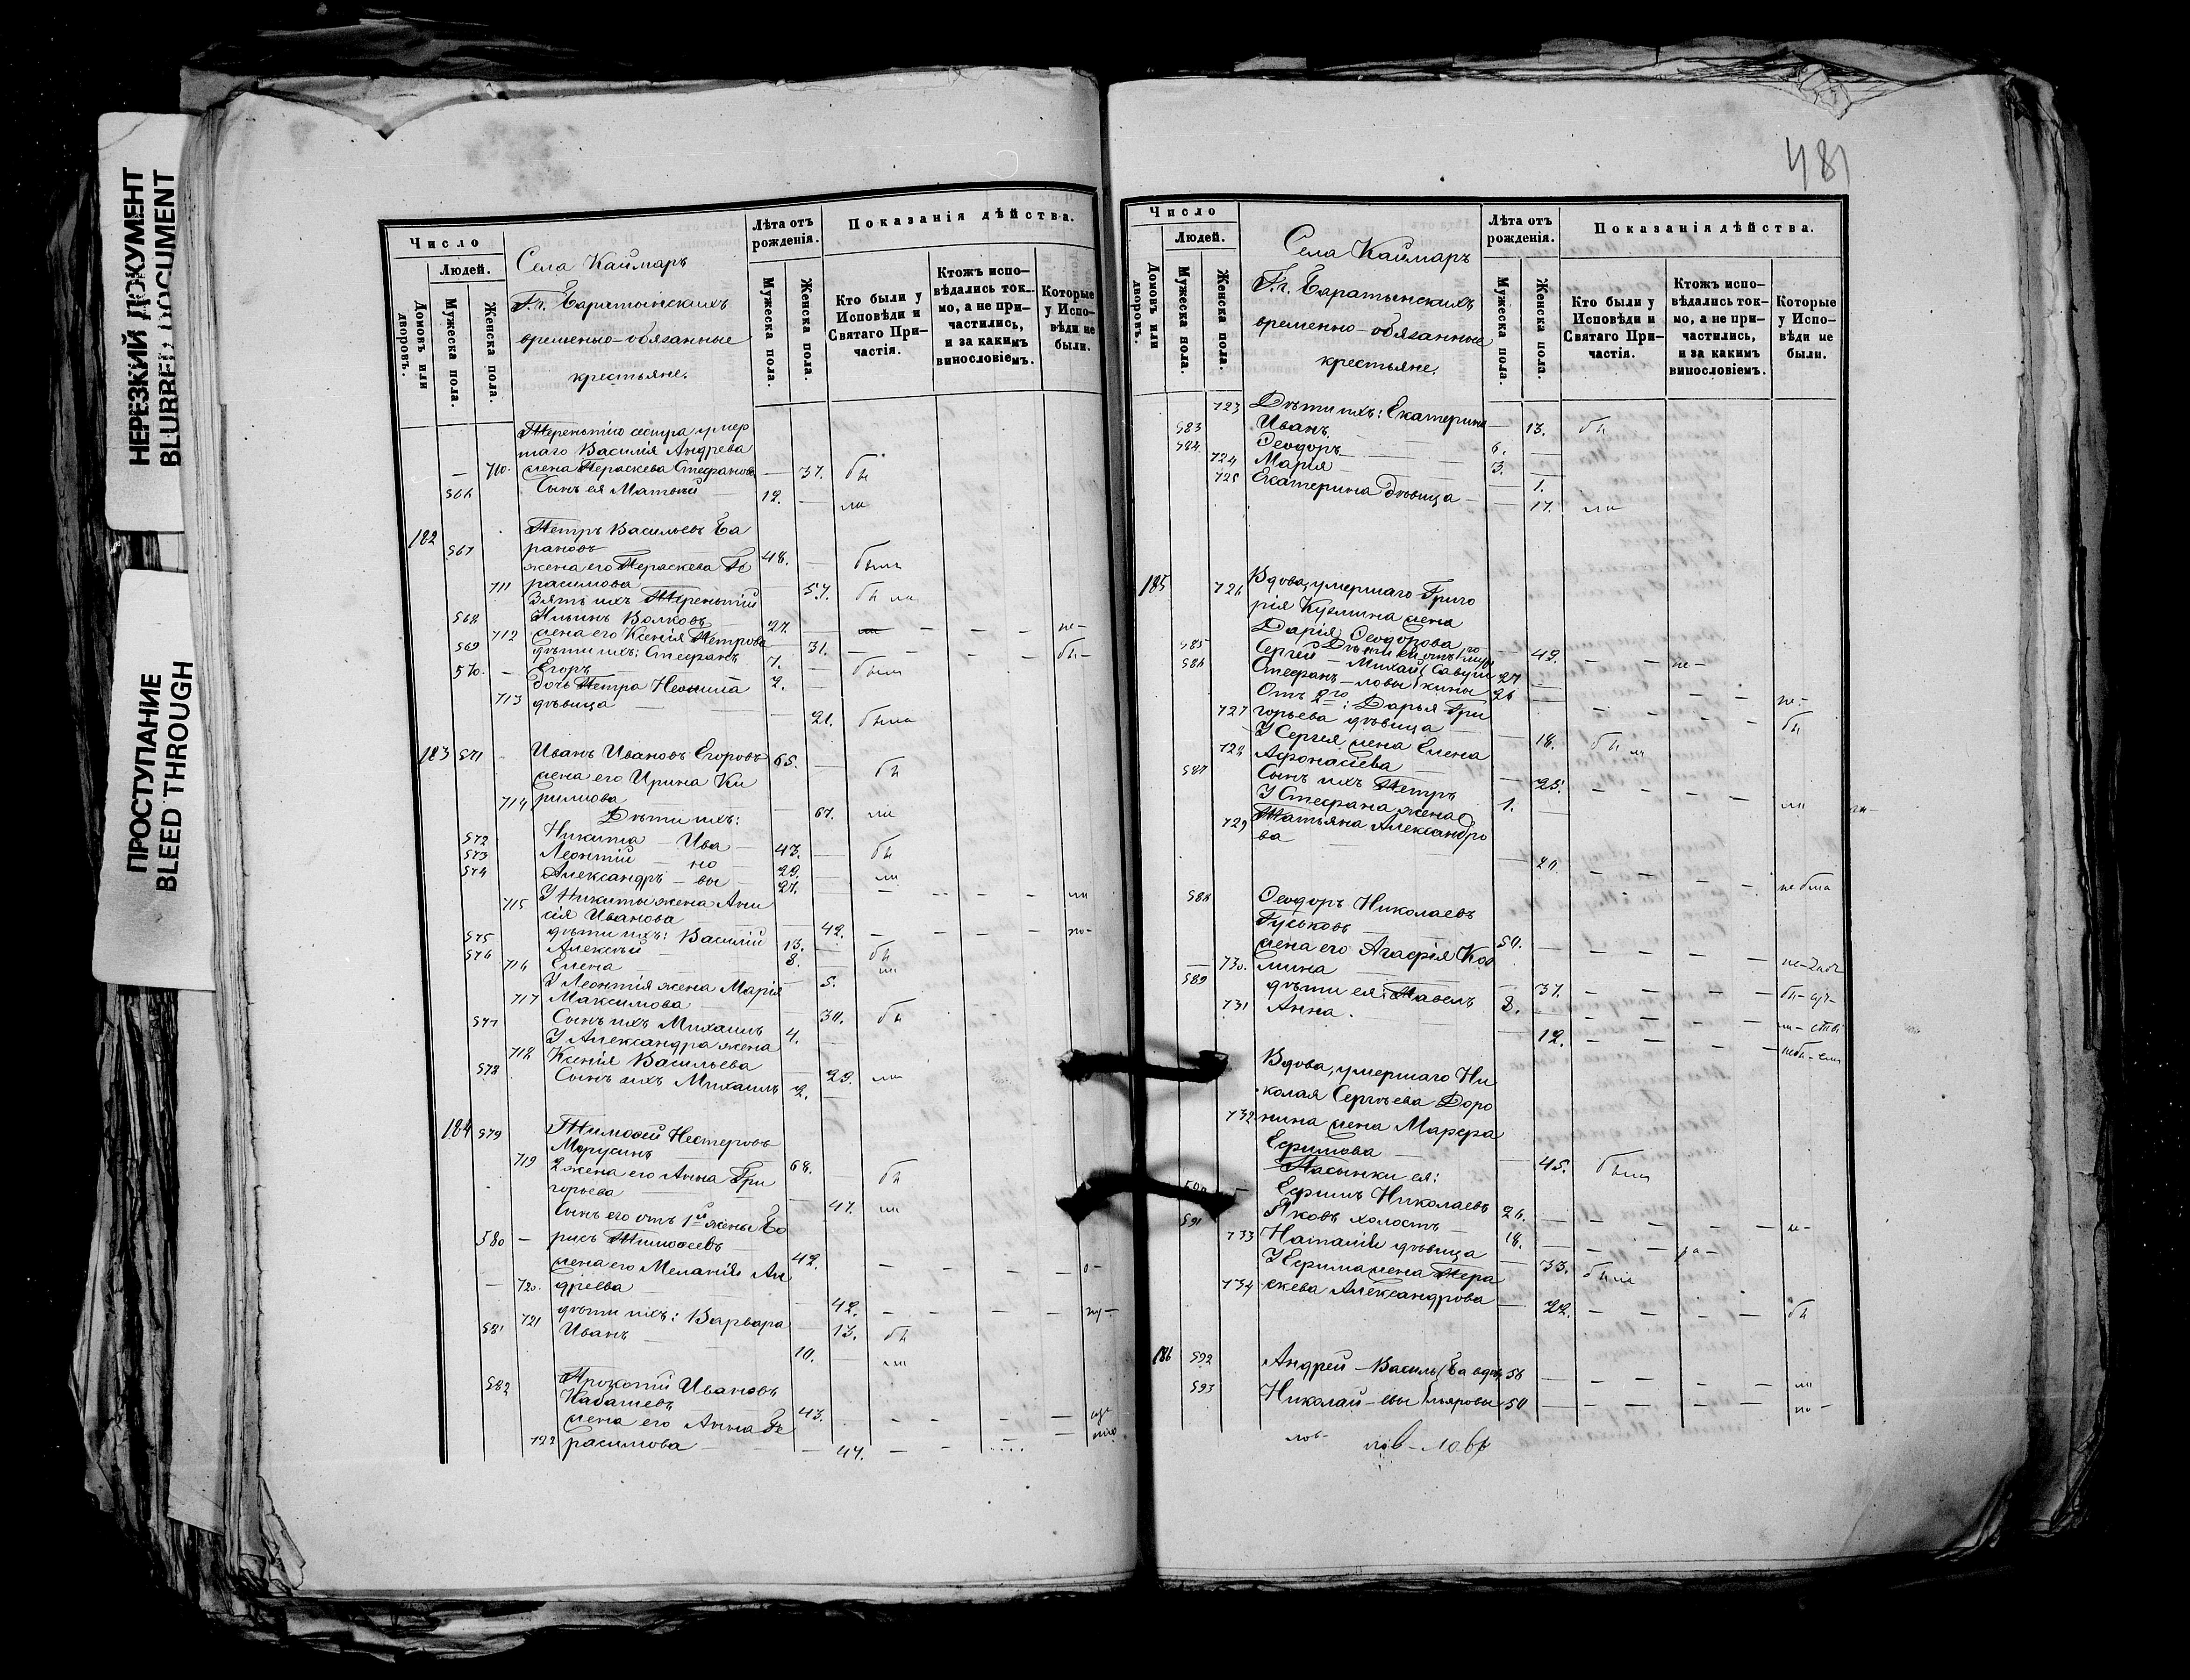 НЕРЕЗКИЙ ДОКУМЕНТ
BLURRED DOCUMENT
ПРОСТУПАНИЕ
BLEED THROUGH
Число
Людей.
Домовъ или дворовъ.
Мужеска пола.
Женска пола.
Села Каймаръ
Г.г. Баратынскихъ
временно-обязанные
крестьяне.
Лѣта отъ рожденія.
Мужеска пола.
Женска пола.
Показанія дѣйства.
Кто были у Исповѣди и Святаго Причастія.
Ктожъ исповѣдались токмо, а не причастились, и за какимъ винословіемъ.
Которые у Исповѣди не были.
Терентію сестра умер
шаго Василія Андреева
710. жена Параскева Стефанова — 37. бы
566 Сынъ ея Матвѣй 12. — ли
182 Петръ Васильевъ Ба
567 рановъ 48. — были
жена его Пераскева Ге
711 расимова 57. бы ли
Зять ихъ Терентій
568 Ильинъ Волковъ 27. — — — не-
712 жена его Ксенія Петрова 31. — — — бы-
569 дѣти ихъ: Стефанъ 7. — были
570. — Егоръ 2. —
дочь Петра Неонила
713 дѣвица — 21. была
183 571 Иванъ Ивановъ Егоровъ 65. — бы
жена его Ирина Ки
714 рилова — 67. ли
Дѣти ихъ:
572 Никита — Ива — 43. — бы
573 Леонтій — но — 29. — ли
574 Александръ — вы — 27. — — — ли
У Никиты жена Ани
715 сія Иванова — 42. — — —
575 дѣти ихъ: Василій 13. — бы
576 Алексѣй 8. — ли
716 Елена — 5.
У Леонтія жена Марія
717 Максимова — 30. бы
577 Сынъ ихъ Михаилъ 4. —
У Александра жена
718 Ксенія Васильева — 29. ли
578 Сынъ ихъ Михаилъ 2. —
184 579 Тимоѳей Нестеровъ
Марусинъ 68. — бы
719 2 жена его Анна Гри
горьева — 47. ли
Сынъ его отъ 1й жены Бо
580 — рисъ Тимоѳеевъ 42. — — —
жена его Меланія Ан
— 720. дреева — 42. — — —
721 дѣти ихъ: Варвара — 13. бы
581 Иванъ 10. — ли
582 Прокопій Ивановъ
Кабашевъ 43. — — —
жена его Анна Ге
722 расимова — 44. — —
481
Число
Людей.
Домовъ или дворовъ.
Мужеска пола.
Женска пола.
Села Каймаръ
Г.г. Баратынскихъ
временно-обязанные
крестьяне.
Лѣта отъ рожденія.
Мужеска пола.
Женска пола.
Показанія дѣйства.
Кто были у Исповѣди и Святаго Причастія.
Ктожъ исповѣдались токмо, а не причастились, и за какимъ винословіемъ.
Которые у Исповѣди не были.
723 Дѣти ихъ: Екатерина — 13. бы
583 Иванъ 6. —
584 Ѳеодоръ 3. —
724 Марія — 1.
725 Екатерина дѣвица — 17. ли
185 726 Вдова, умершаго Григо
рія Кузмина жена
Дарія Ѳеодорова — 49. — — не-
Дѣти ей отъ 1го мужа
585 Сергей — Михай Савуш 27 — — — не-
586 Стефанъ — ловы кины 26 — — — бы
Отъ 2го: Дарья Гри
727 горьева дѣвица — 18. бы ли
У Сергея жена Елена
728 Афонасіева — 25. — — — ли
587 Сынъ ихъ Петръ 1. —
У Стефана жена
729 Татьяна Александро
ва — 20. — — — не бла
588 Ѳеодоръ Николаевъ
Гуськовъ 50. — — —
жена его Агафія Коз
730. мина — 37. — — —
589 дѣти ея: Павелъ 8. — — —
731 Анна. — 12. — — —
Вдова, умершаго Ни
колая Сергѣева Доро
732 нина жена Марфа
Ефимова — 45. были
Пасынки ея:
590 Ефимъ Николаевъ 26. — — — не-
591 Яковъ холостъ 18. — — ра-
733 Наталія дѣвица — 33. были
У Ефима жена Пера
734 скева Александрова — 22. — — — бы
186 592 Андрей — Василь 56 — — — ли
593 Николай — евы 50 — — —